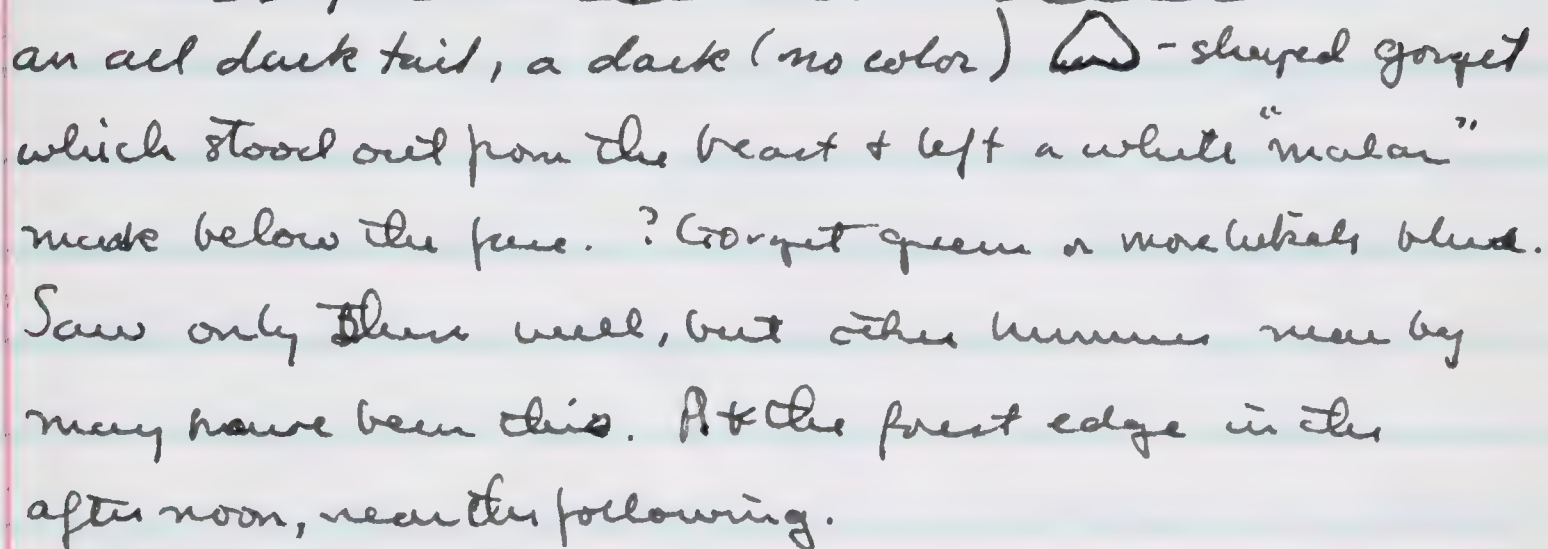 an all dark tail, a dark (no color) -shaped gorget
which stood out from the breast & left a white "malar"
mark below the face. ? Gorget green or more likely blue.
Saw only this well, but other hummers near by
may have been this. At the forest edge in the
afternoon, near the following.